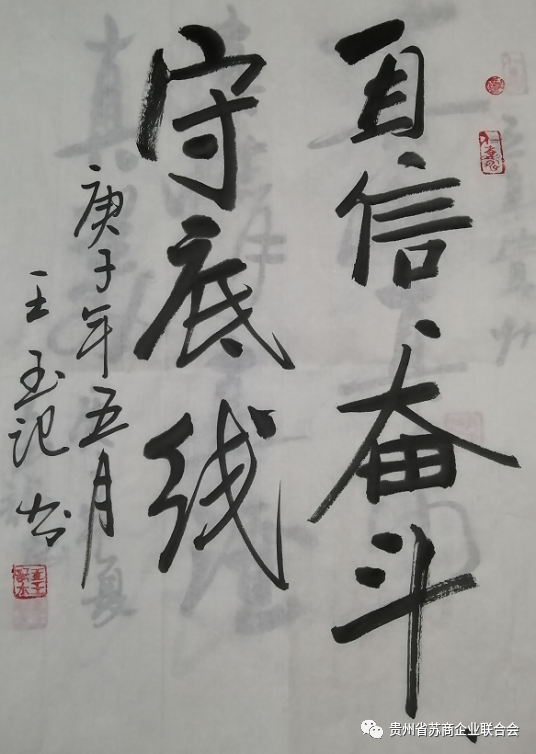 自信奋斗
守底线
庚子年五月
王玉记书
贵州省苏商企业联合会